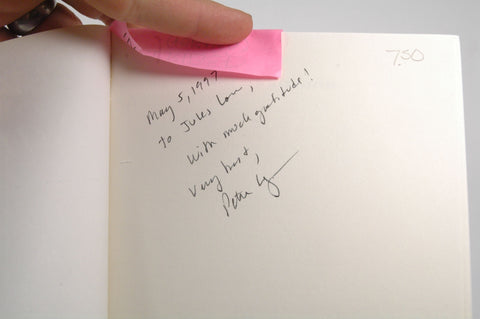 7.50
May 5, 1997
To Jules
With much gratitude!
Very best,
Peter